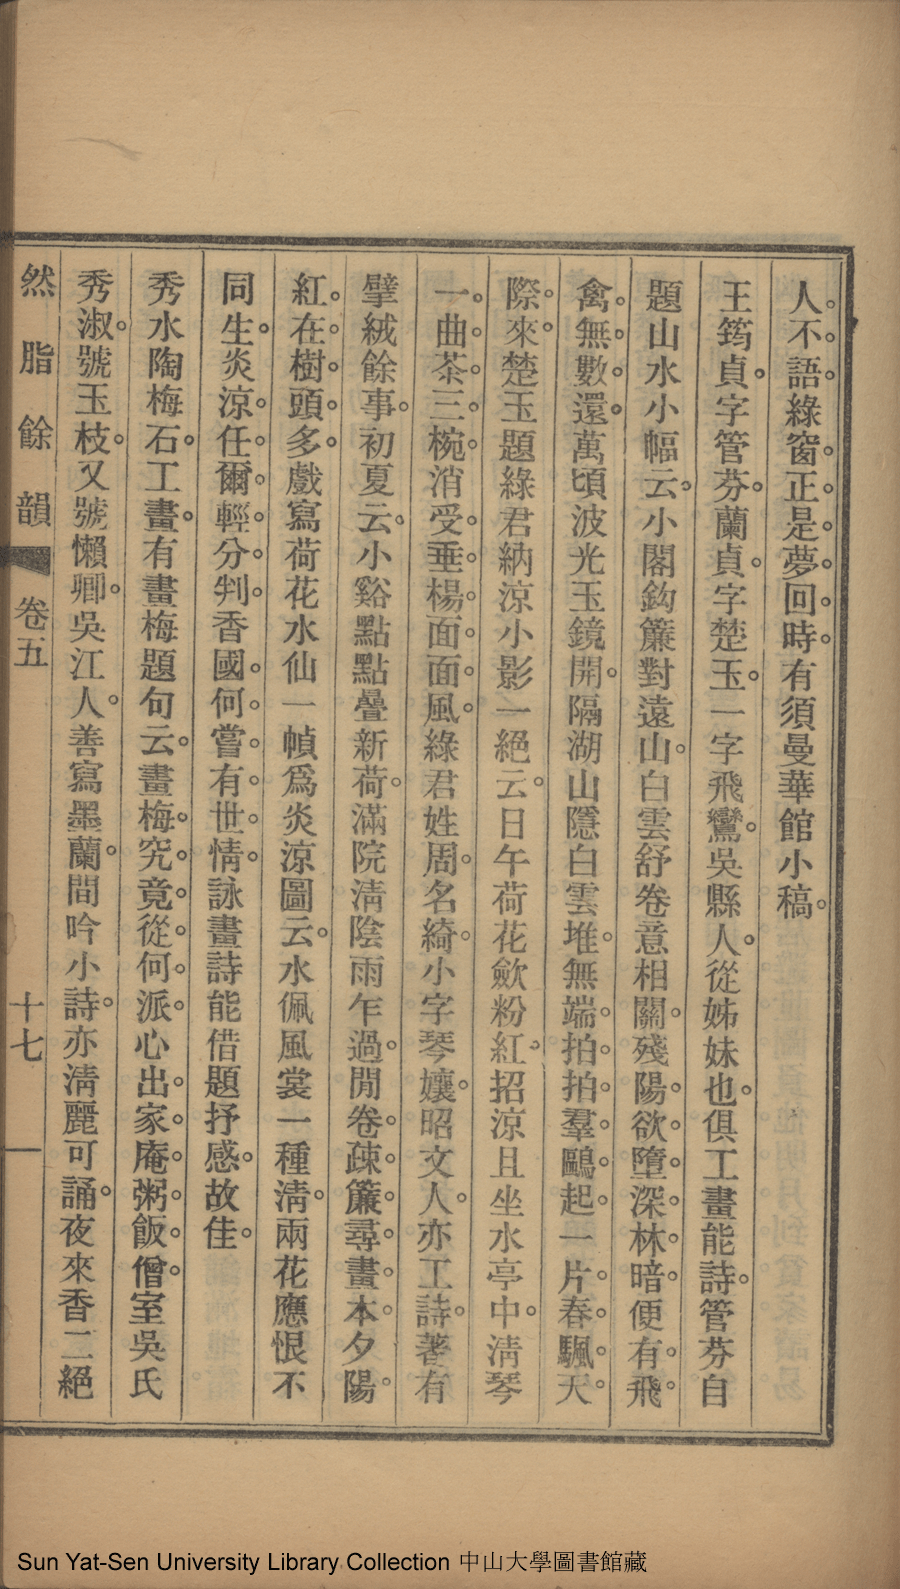 人不語綠窗正是夢回時有須曼華館小稿
王筠貞字管芬蘭貞字楚玉一字飛鸞吳縣人從姊妹也俱工畫能詩管芬自
題山水小幅云小閣鈎簾對遠山白雲舒卷意相關殘陽欲墮深林暗便有飛
禽無數還萬頃波光玉鏡開隔湖山隱白雲堆無端拍拍羣鷗起一片春颿天
際來楚玉題綠君納涼小影一絕云日午荷花歛粉紅招涼且坐水亭中淸琴
一曲茶三椀消受垂楊面面風綠君姓周名綺小字琴孃昭文人亦工詩著有
擘絨餘事初夏云小谿點點疊新荷滿院淸陰雨乍過閒卷疎簾尋畫本夕陽
紅在樹頭多戲寫荷花水仙一幀爲炎涼圖云水佩風裳一種淸兩花應恨不
同生炎涼任爾輕分判香國何嘗有世情詠畫詩能借題抒感故佳
秀水陶梅石工畫有畫梅題句云畫梅究竟從何派心出家庵粥飯僧室吳氏
秀淑號玉枝又號懶卿吳江人善寫墨蘭間吟小詩亦淸麗可誦夜來香二絕
然脂餘韻 卷五 十七
Sun Yat-Sen University Library Collection 中山大學圖書館藏